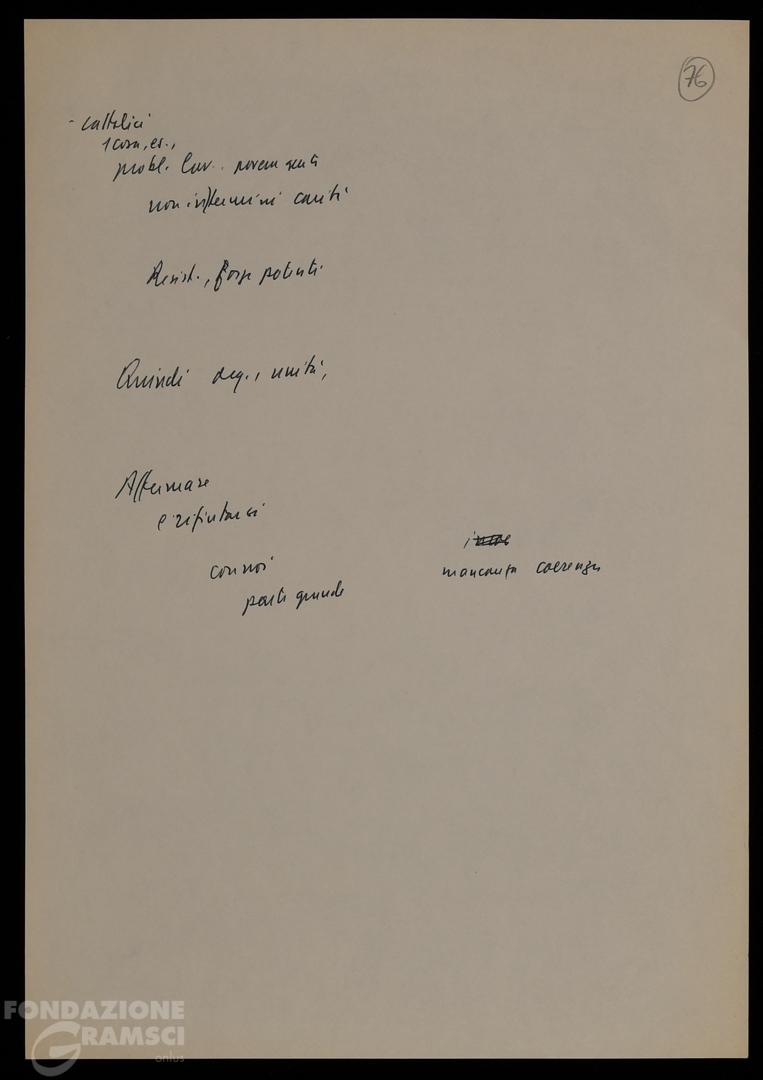 76
- cattolici
1 cosa, es.,
probl. lav.
non in termini carità
Resist., forze potenti
Quindi deg., unità,
Affermare
e rifiutarci
con noi
parte grande
mancanza coerenza
FONDAZIONE
GRAMSCI
onlus